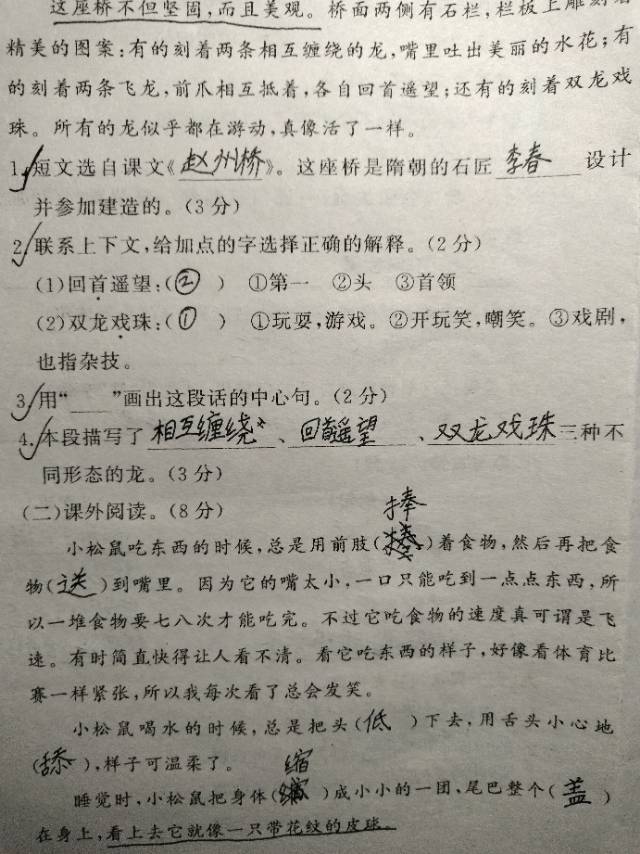 这座桥不但坚固,而且美观。桥面两侧有石栏,栏板上雕刻着
精美的图案:有的刻着两条相互缠绕的龙,嘴里吐出美丽的水花;有
的刻着两条飞龙,前爪相互抵着,各自回首遥望;还有的刻着双龙戏
珠。所有的龙似乎都在游动,真像活了一样。
1.短文选自课文《赵州桥》。这座桥是隋朝的石匠 李春 设计
并参加建造的。(3分)
2.联系上下文,给加点的字选择正确的解释。(2分)
(1)回首遥望:(②) ①第一 ②头 ③首领
(2)双龙戏珠:(①) ①玩耍,游戏。②开玩笑,嘲笑。③戏剧,
也指杂技。
3.用“___”画出这段话的中心句。(2分)
4.本段描写了 相互缠绕 、 回首遥望 、 双龙戏珠 三种不
同形态的龙。(3分)
(二)课外阅读。(8分)
捧
小松鼠吃东西的时候,总是用前肢( )着食物,然后再把食
物(送)到嘴里。因为它的嘴太小,一口只能吃到一点点东西,所
以一堆食物要七八次才能吃完。不过它吃食物的速度真可谓是飞
速。有时简直快得让人看不清。看它吃东西的样子,好像看体育比
赛一样紧张,所以我每次看了总会发笑。
小松鼠喝水的时候,总是把头(低)下去,用舌头小心地
(舔),样子可温柔了。
缩
睡觉时,小松鼠把身体( )成小小的一团,尾巴整个(盖)
在身上,看上去它就像一只带花纹的皮球。